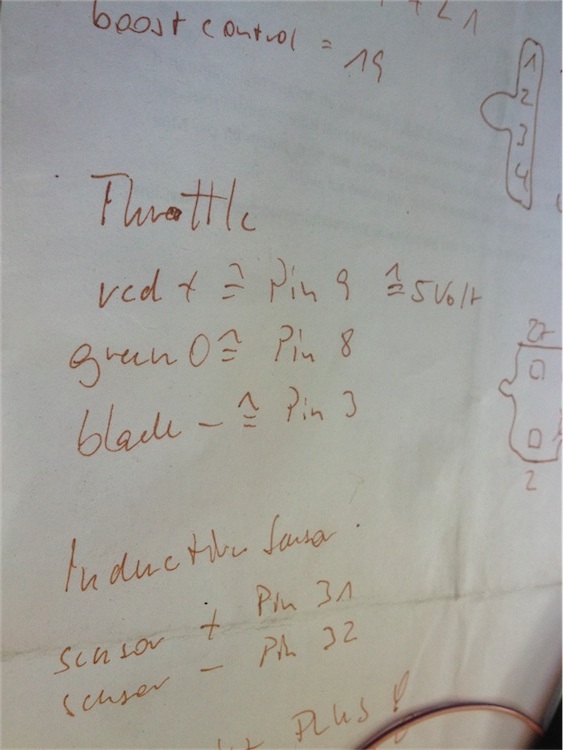 +21
boost control = 19
1
2
3
4
Throttle
red + ≙ Pin 9 ≙ 5Volt
green 0 ≙ Pin 8
black - ≙ Pin 3
2
Inductive Sensor
sensor + Pin 31
sensor - Pin 32
PLUS!